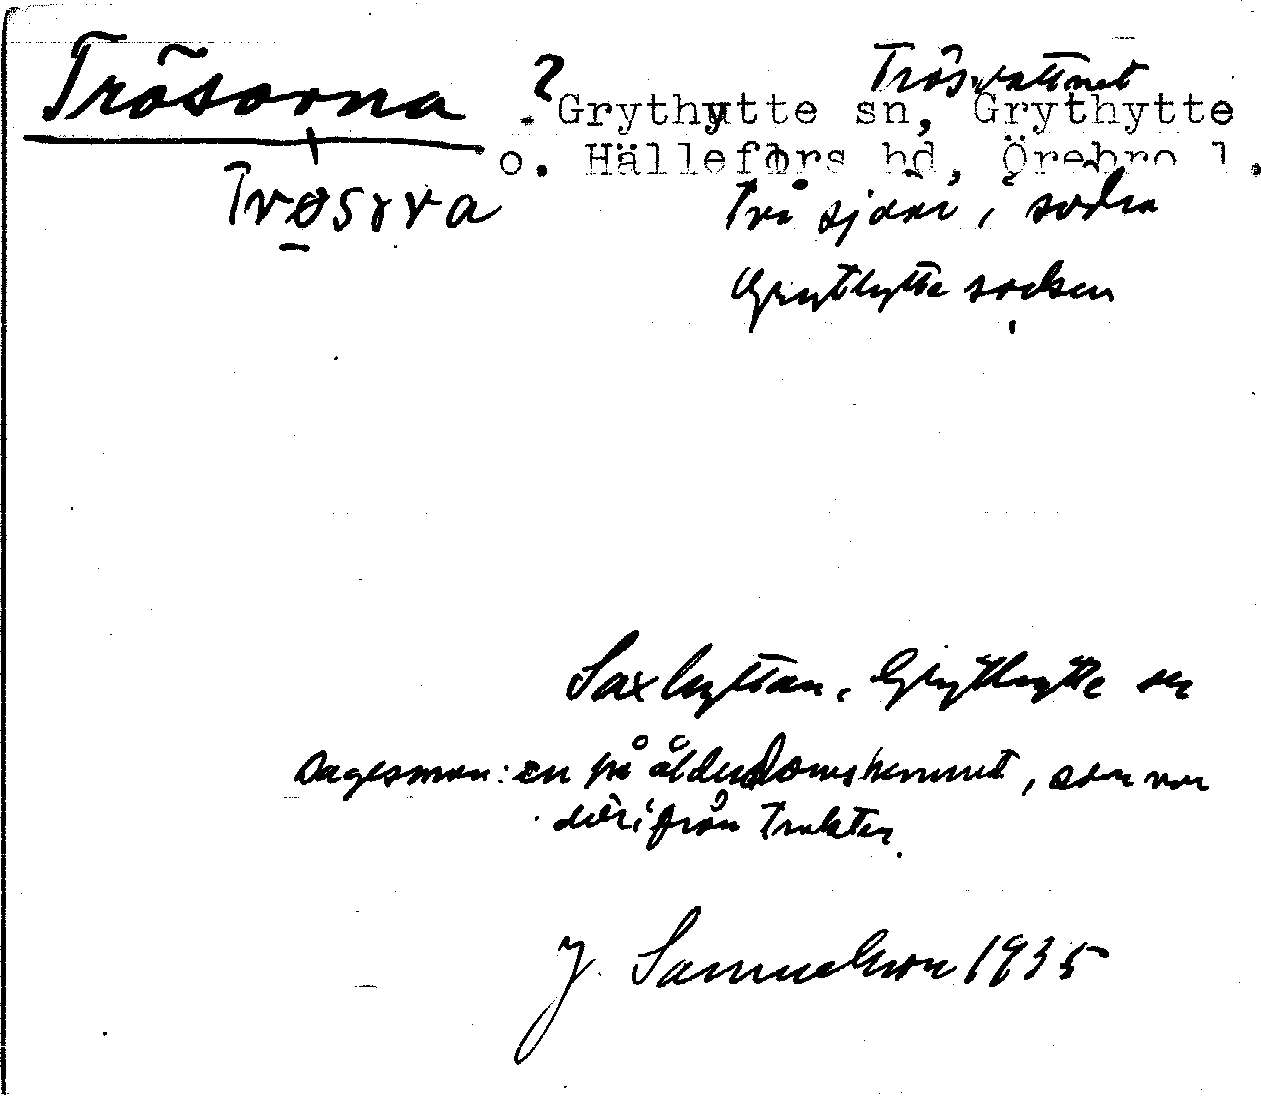 Trösorna ? Trösvattnet
Grythytte sn, Grythytte
o. Hällefors hd, Örebro l.
Trøsɤra
Två sjöar i södra
Grythytte socken
Saxhyttan, Grythytte sn
Sagesman: en på ålderdomshemmet, som var
därifrån trakten.
J. Samuelson 1935